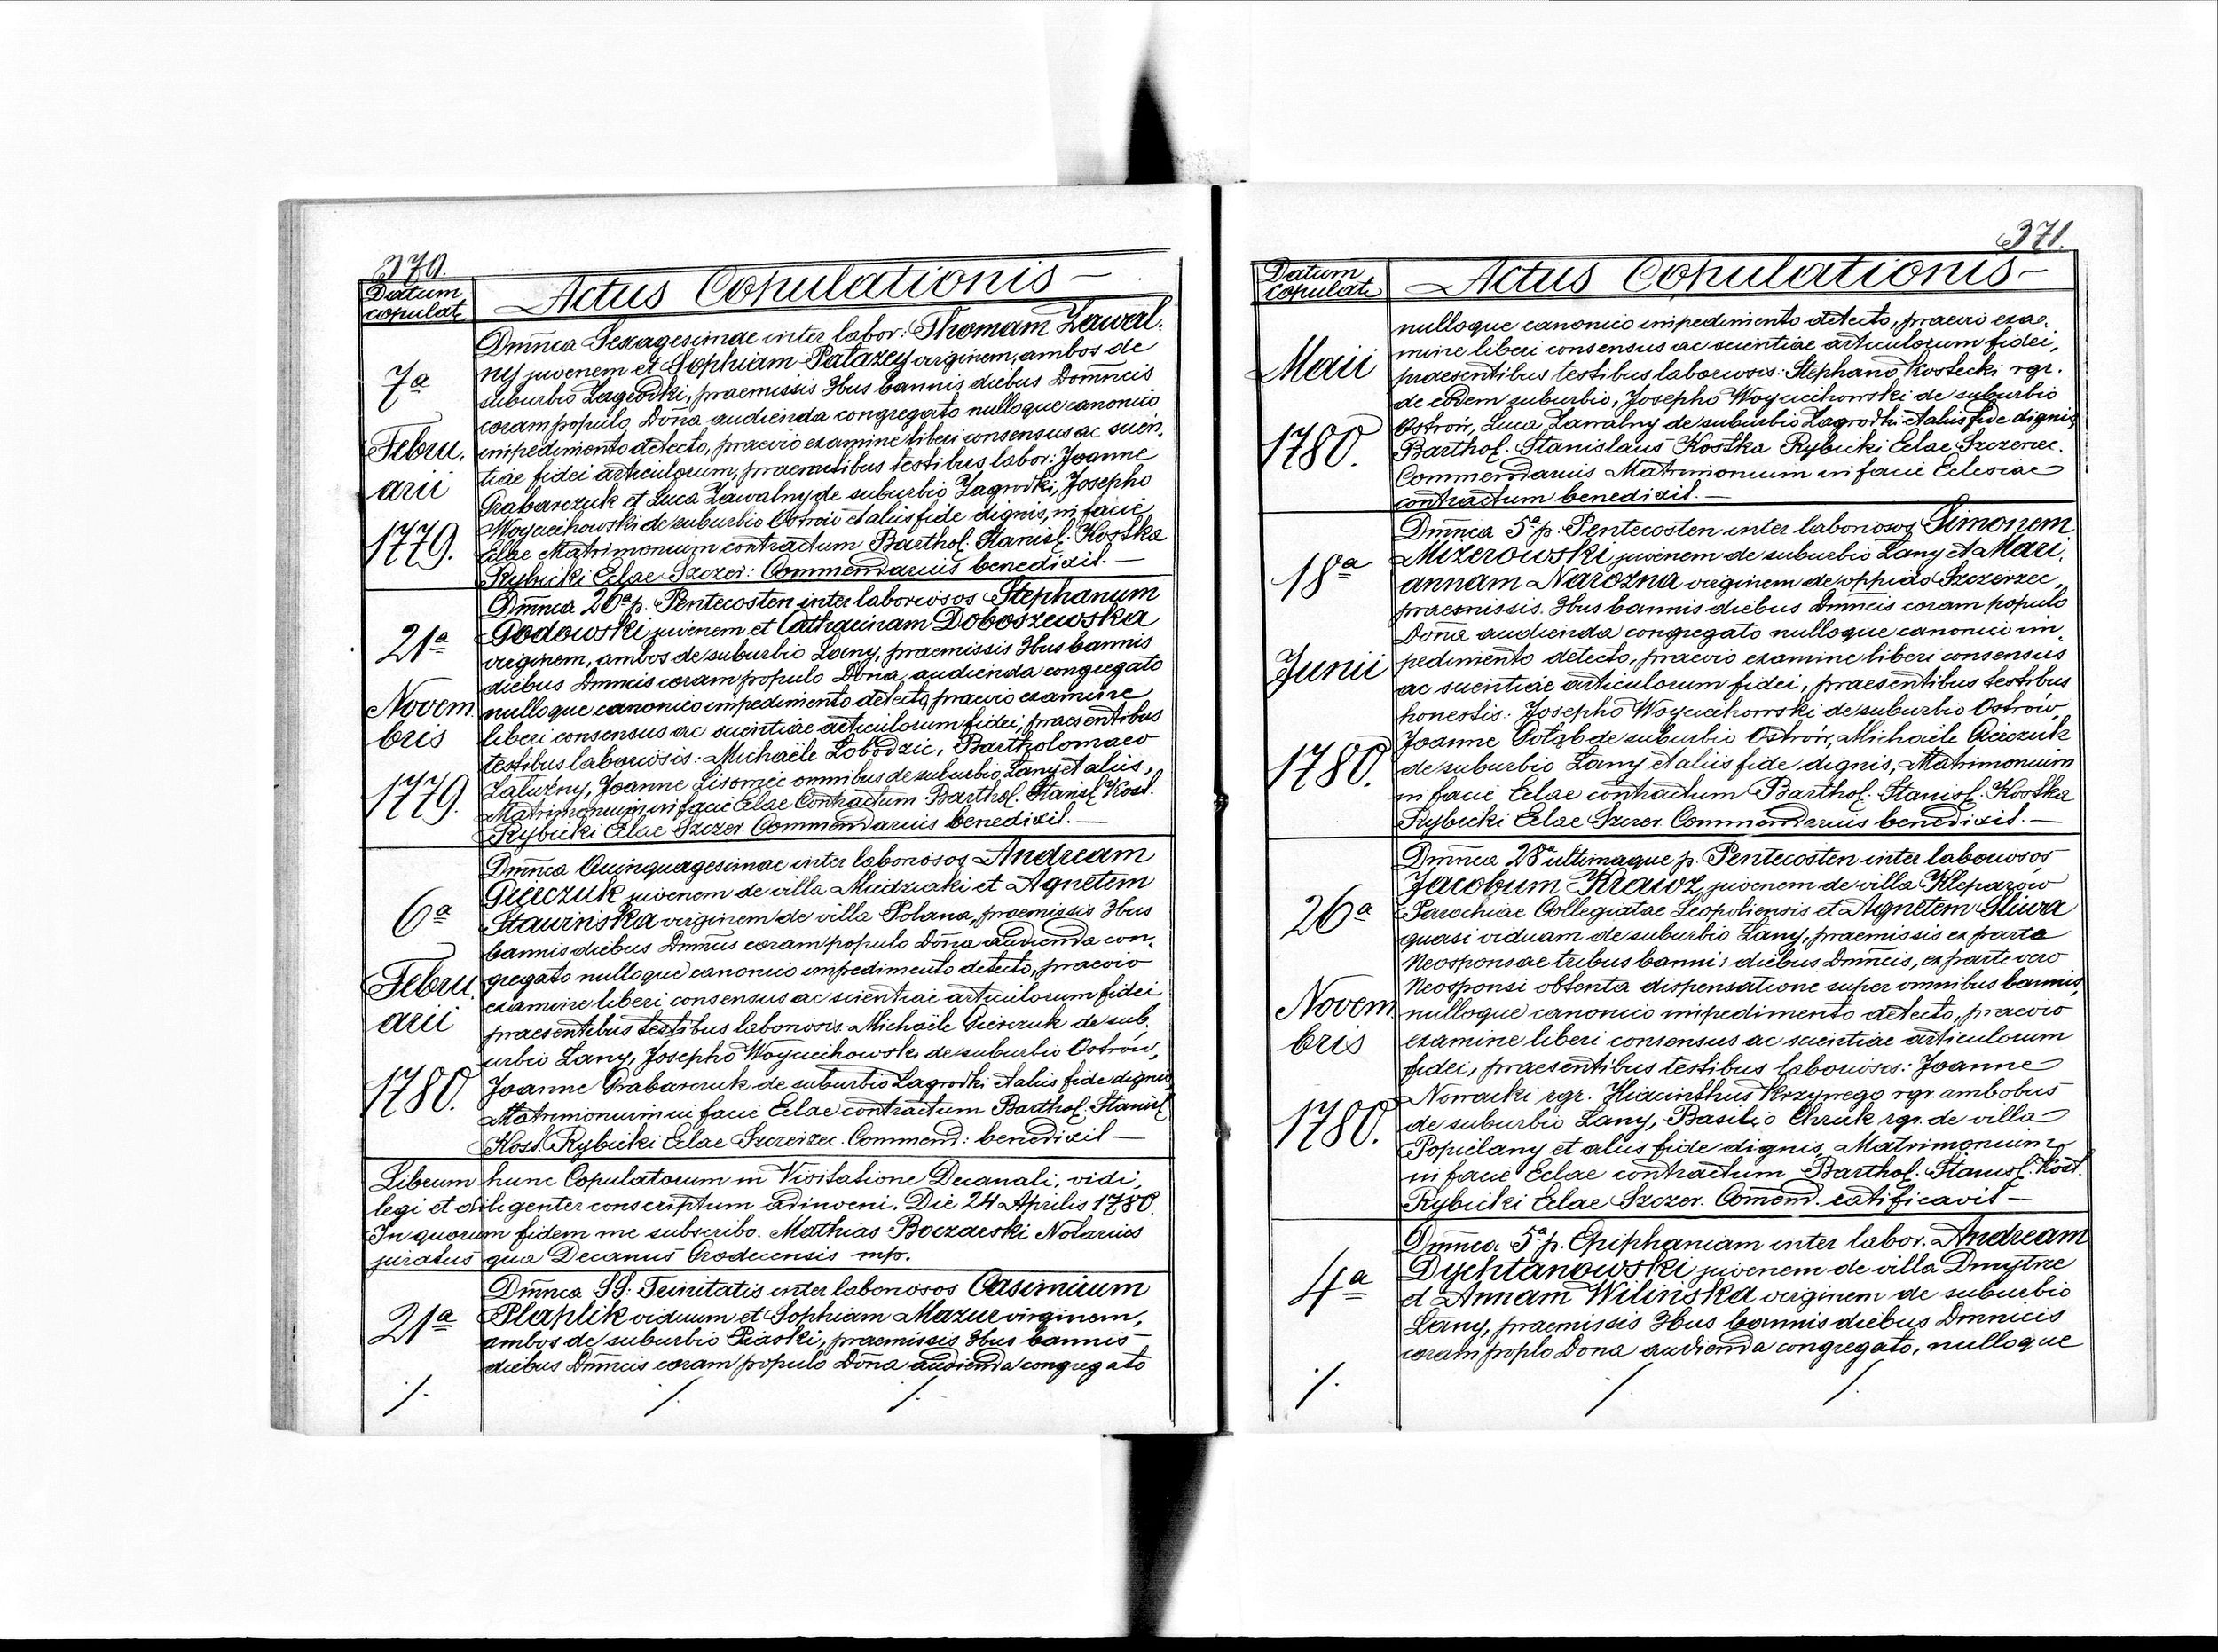 370.
Datum
copulat.
Actus Copulationis —
7a
Febru.
arii
1779.
Dmnca Sexagesimae inter labor: Thomam Zawal.
ny juvenem et Sophiam Patazey virginem, ambos de
suburbio Zagrodki, praemissis 3bus bannis diebus Domncis
coram populo, Dona audienda congregato nulloque canonico
impedimento detecto, praevio examine liberi consensus ac scien.
tiae fidei articulorum, praesentibus testibus, labor: Joanne
Grabarczuk et Luca Zawalny de suburbio Zagrodki, Josepho
Woyciechowski de suburbio Ostrów et aliis fide dignis, in facie
Eclae Matrimonium contractum Barthol. Stanisl. Kostka
Rybicki Eclae Szczer: Commendarius benedixit. —
21a
Novem
bris
1779.
Dmnca 26a p. Pentecosten inter laboriosos Stephanum
Godowski juvenem et Catharinam Doboszewska
virginem, ambos de suburbio Lany, praemissis 3bus bannis
diebus Dmncis coram populo Dona audienda congregato
nulloque canonico impedimento detecto, praevio examine
liberi consensus ac scientiae articulorum fidei, praesentibus
testibus laboriosis: Michaële Lobodzic, Bartholomaeo
Zaluzny, Joanne Lisomec omnibus de suburbio Lany et aliis,
Matrimonium in facie Eclae Contractum Barthol. Stanisl. Kost.
Rybicki Eclae Szczer. Commendarius benedixit. —
6a
Febru.
arii
1780.
Dmnca Quinquagesimae inter laboriosos Andream
Gierczuk juvenem de villa Miedziaki et Agnetem
Stawinska virginem de villa Polana, praemissis 3bus
bannis diebus Dmncis coram populo Dona audienda con.
gregato nulloque canonico impedimento detecto, praevio
examine liberi consensus ac scientiae articulorum fidei
praesentibus testibus laboriosis Michaële Gierczuk de sub.
urbio Lany, Josepho Woyciechowski de suburbio Ostrów,
Joanne Grabarczuk de suburbio Zagrodki et aliis fide dignis
Matrimonium in facie Eclae contractum Barthol. Stanisl.
Kost. Rybicki Eclae Szczerzec. Commend: benedixit —
Librum hunc Copulatorum in Visitatione Decanali, vidi,
legi et diligenter conscriptum adinveni. Die 24 Aprilis 1780.
In quorum fidem me subscribo. Mathias Boczarski Notarius
juratus qua Decanus Grodecensis mp.
21a
Dmnca SS: Trinitatis inter laboriosos Casimirum
Plaplik viduum et Sophiam Mazur virginem,
ambos de suburbio Piaski, praemissis 3bus bannis
diebus Dmncis coram populo Dona audienda congregato
./. ./. ./.
371.
Datum
copulat.
Actus Copulationis —
Maii
1780.
nulloque canonico impedimento detecto, praevio exa.
mine liberi consensus ac scientiae articulorum fidei,
praesentibus testibus laboriosis: Stephano Kostecki rgr.
de eodem suburbio, Josepho Woyciechowski de suburbio
Ostrów, Luca Zawalny de suburbio Zagrodki et aliis fide dignis,
Barthol. Stanislaus Kostka Rybicki Eclae Szczerzec.
Commendarius Matrimonium in facie Eclesiae
contractum benedixit. —
18a
Junii
1780.
Dmnca 5a p. Pentecosten inter laboriosos Simonem
Mizerowski juvenem de suburbio Lany et Mari.
annam Narozna virginem de oppido Szczerzec,
praemissis 3bus bannis diebus Dmncis coram populo
Dona audienda congregato nulloque canonico im.
pedimento detecto, praevio examine liberi consensus
ac scientiae articulorum fidei, praesentibus testibus
honestis: Josepho Woyciechowski de suburbio Ostrów,
Joanne Gołąb de suburbio Ostrów, Michaële Gierczuk
de suburbio Lany et aliis fide dignis, Matrimonium
in facie Eclae contractum Barthol. Stanisl. Kostka
Rybicki Eclae Szczer. Commendarius benedixit. —
26a
Novem
bris
1780.
Dmnca 28a ultimaque p. Pentecosten inter laboriosos
Jacobum Krawz juvenem de villa Kleparów
Parochiae Collegiatae Leopoliensis et Agnetem Sliwa
quasi viduam de suburbio Lany, praemissis ex parte
Neosponsae tribus bannis diebus Dmncis, ex parte vero
Neosponsi obtenta dispensatione super omnibus bannis,
nulloque canonico impedimento detecto, praevio
examine liberi consensus ac scientiae articulorum
fidei, praesentibus testibus laboriosis: Joanne
Nowacki rgr. Hiacinthus Krzywego rgr. ambobus
de suburbio Lany, Basilio Chruk rgr. de villa
Popielany et aliis fide dignis, Matrimonium
in facie Eclae contractum Barthol. Stanisl. Kost.
Rybicki Eclae Szczer. Comend. ratificavit —
4a
Dmnca 5a p. Epiphaniam inter labor. Andream
Dychtanowski juvenem de villa Dmytrze
et Annam Wilinska virginem de suburbio
Lany, praemissis 3bus bannis diebus Dmnicis
coram poplo Dona audienda congregato, nulloque
./. ./. ./.